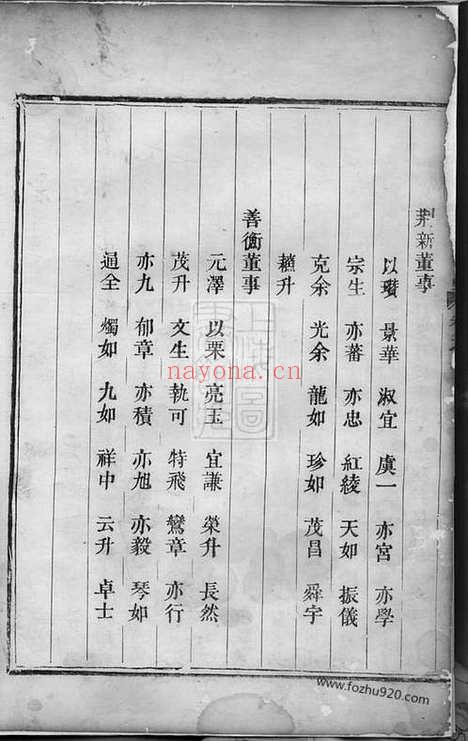 荆新董事
以瓚 景華 淑宜 虞一 亦宮 亦學
宗生 亦蕃 亦忠 紅綾 天如 振儀
克余 光余 龍如 珍如 茂昌 舜宇
賴升
善衞董事
元澤 以栗 亮玉 宜謙 榮升 長然
茂升 文生 執可 特飛 鸞章 亦行
亦九 郁章 亦積 亦旭 亦毅 琴如
通全 燭如 九如 祥中 云升 卓士
nayona.cn
www.fozhu920.com